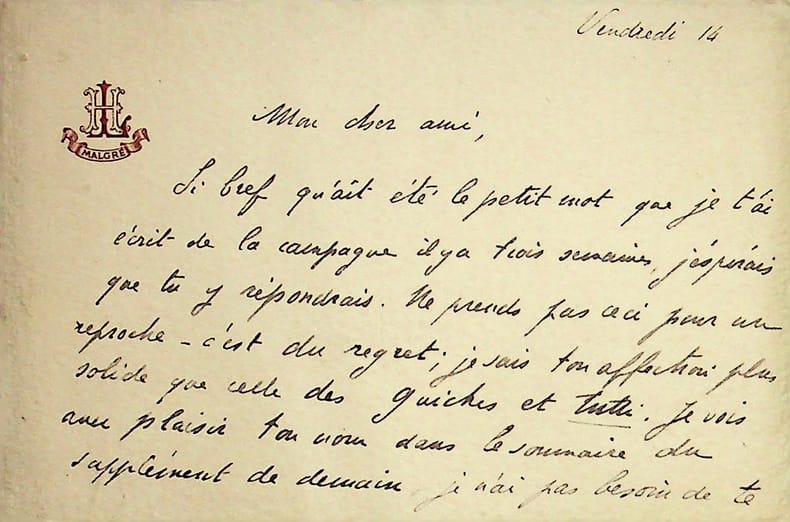 Vendredi 14
HL
MALGRÉ
Mon cher ami,
Si bref qu'ait été le petit mot que je t'ai
écrit de la campagne il y a trois semaines, j'espérais
que tu y répondrais. Ne prends pas ceci pour un
reproche - c'est du regret; je sais ton affection plus
solide que celle des Guiches et tutti. Je vois
avec plaisir ton nom dans le sommaire du
supplément de demain, je n'ai pas besoin de te